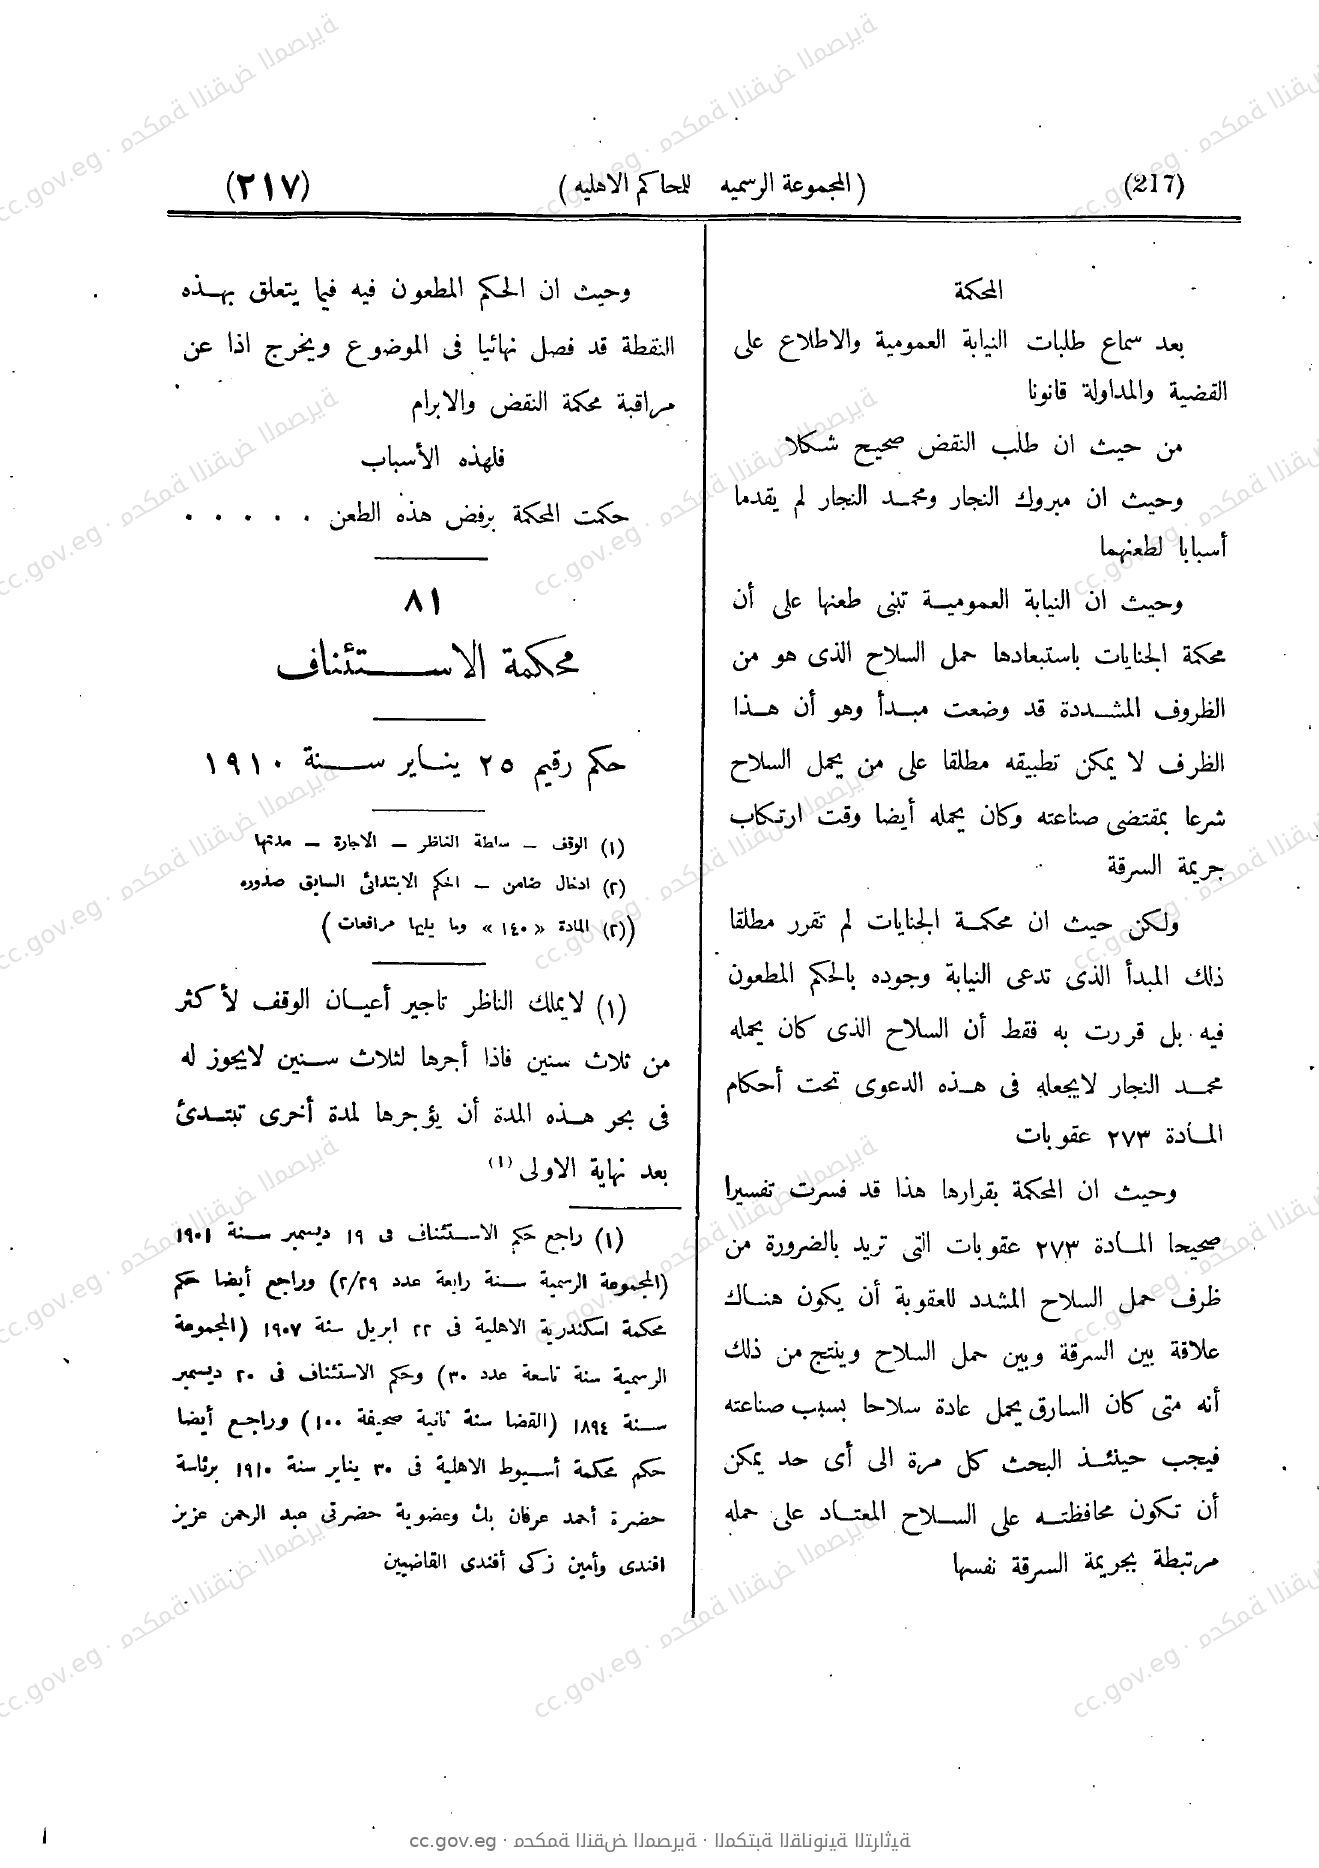 (217) (المجموعة الرسميه للمحاكم الاهليه) (٢١٧)
المحكمة
بعد سماع طلبات النيابة العمومية والاطلاع على
القضية والمداولة قانونا
من حيث ان طلب النقض صحيح شكلا
وحيث ان مبروك النجار ومحمد النجار لم يقدما
أسبابا لطعنهما
وحيث ان النيابة العمومية تبنى طعنها على أن
محكمة الجنايات باستبعادها حمل السلاح الذى هو من
الظروف المشددة قد وضعت مبدأ وهو أن هذا
الظرف لا يمكن تطبيقه مطلقا على من يحمل السلاح
شرعا بمقتضى صناعته وكان يحمله أيضا وقت ارتكاب
جريمة السرقة
ولكن حيث ان محكمة الجنايات لم تقرر مطلقا
ذلك المبدأ الذى تدعى النيابة وجوده بالحكم المطعون
فيه بل قررت به فقط أن السلاح الذى كان يحمله
محمد النجار لايجعله فى هذه الدعوى تحت أحكام
المادة ٢٧٣ عقوبات
وحيث ان المحكمة بقرارها هذا قد فسرت تفسيرا
صحيحا المادة ٢٧٣ عقوبات التى تريد بالضرورة من
ظرف حمل السلاح المشدد للعقوبة أن يكون هناك
علاقة بين السرقة وبين حمل السلاح وينتج من ذلك
أنه متى كان السارق يحمل عادة سلاحا بسبب صناعته
فيجب حينئذ البحث كل مرة الى أى حد يمكن
أن تكون محافظته على السلاح المعتاد على حمله
مرتبطة بجريمة السرقة نفسها
وحيث ان الحكم المطعون فيه فيما يتعلق بهذه
النقطة قد فصل نهائيا فى الموضوع ويخرج اذا عن
مراقبة محكمة النقض والابرام
فلهذه الأسباب
حكمت المحكمة برفض هذه الطعن . . . . .
٨١
محكمة الاستئناف
حكم رقيم ٢٥ يناير سنة ١٩١٠
(١) الوقف – سلطة الناظر – الاجارة – مدتها
(٢) ادخال ضامن – الحكم الابتدائى السابق صدوره
((٢) المادة «١٤٠» وما يليها مرافعات)
(١) لايملك الناظر تاجير أعيان الوقف لأكثر
من ثلاث سنين فاذا أجرها لثلاث سنين لايجوز له
فى بحر هذه المدة أن يؤجرها لمدة أخرى تبتدئ
بعد نهاية الاولى (١)
(١) راجع حكم الاستئناف فى ١٩ ديسمبر سنة ١٩٠١
(المجموعة الرسمية سنة رابعة عدد ٢/٢٩) وراجع أيضا حكم
محكمة اسكندرية الاهلية فى ٢٢ ابريل سنة ١٩٠٧ (المجموعة
الرسمية سنة تاسعة عدد ٣٠) وحكم الاستئناف فى ٢٠ ديسمبر
سنة ١٨٩٤ (القضا سنة ثانية صحيفة ١٠٠) وراجع أيضا
حكم محكمة أسيوط الاهلية فى ٣٠ يناير سنة ١٩١٠ برئاسة
حضرة أحمد عرفان بك وعضوية حضرتى عبد الرحمن عزيز
افندى وأمين زكى أفندى القاضيين
cc.gov.eg · محكمة النقض المصرية · المكتبة القانونية التراثية